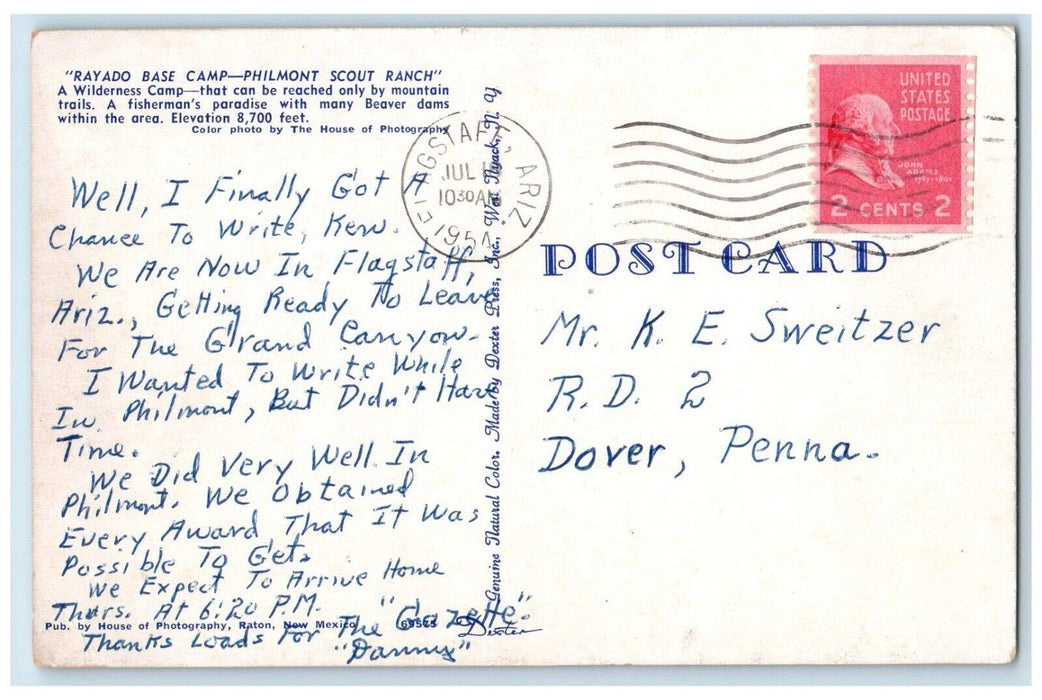 "RAYADO BASE CAMP—PHILMONT SCOUT RANCH"
A Wilderness Camp—that can be reached only by mountain
trails. A fisherman's paradise with many Beaver dams
within the area. Elevation 8,700 feet.
Color photo by The House of Photography
Well, I Finally Got A
Chance To Write, Ken.
We Are Now In Flagstaff,
Ariz., Getting Ready To Leave
For The Grand Canyon.
I Wanted To Write While
In Philmont, But Didn't Have
Time.
We Did Very Well In
Philmont. We Obtained
Every Award That It Was
Possible To Get.
We Expect To Arrive Home
Thurs. At 6:20 P.M.
Thanks Loads For The "Gazette".
"Danny"
Pub. by House of Photography, Raton, New Mexico
Dexter
Genuine Natural Color. Made by Dexter Press, Inc., West Nyack, N. Y.
FLAGSTAFF, ARIZ
JUL
10 30 AM
1954
UNITED
STATES
POSTAGE
JOHN
ADAMS
1797-1801
2 CENTS 2
POST CARD
Mr. K. E. Sweitzer
R. D. 2
Dover, Penna.